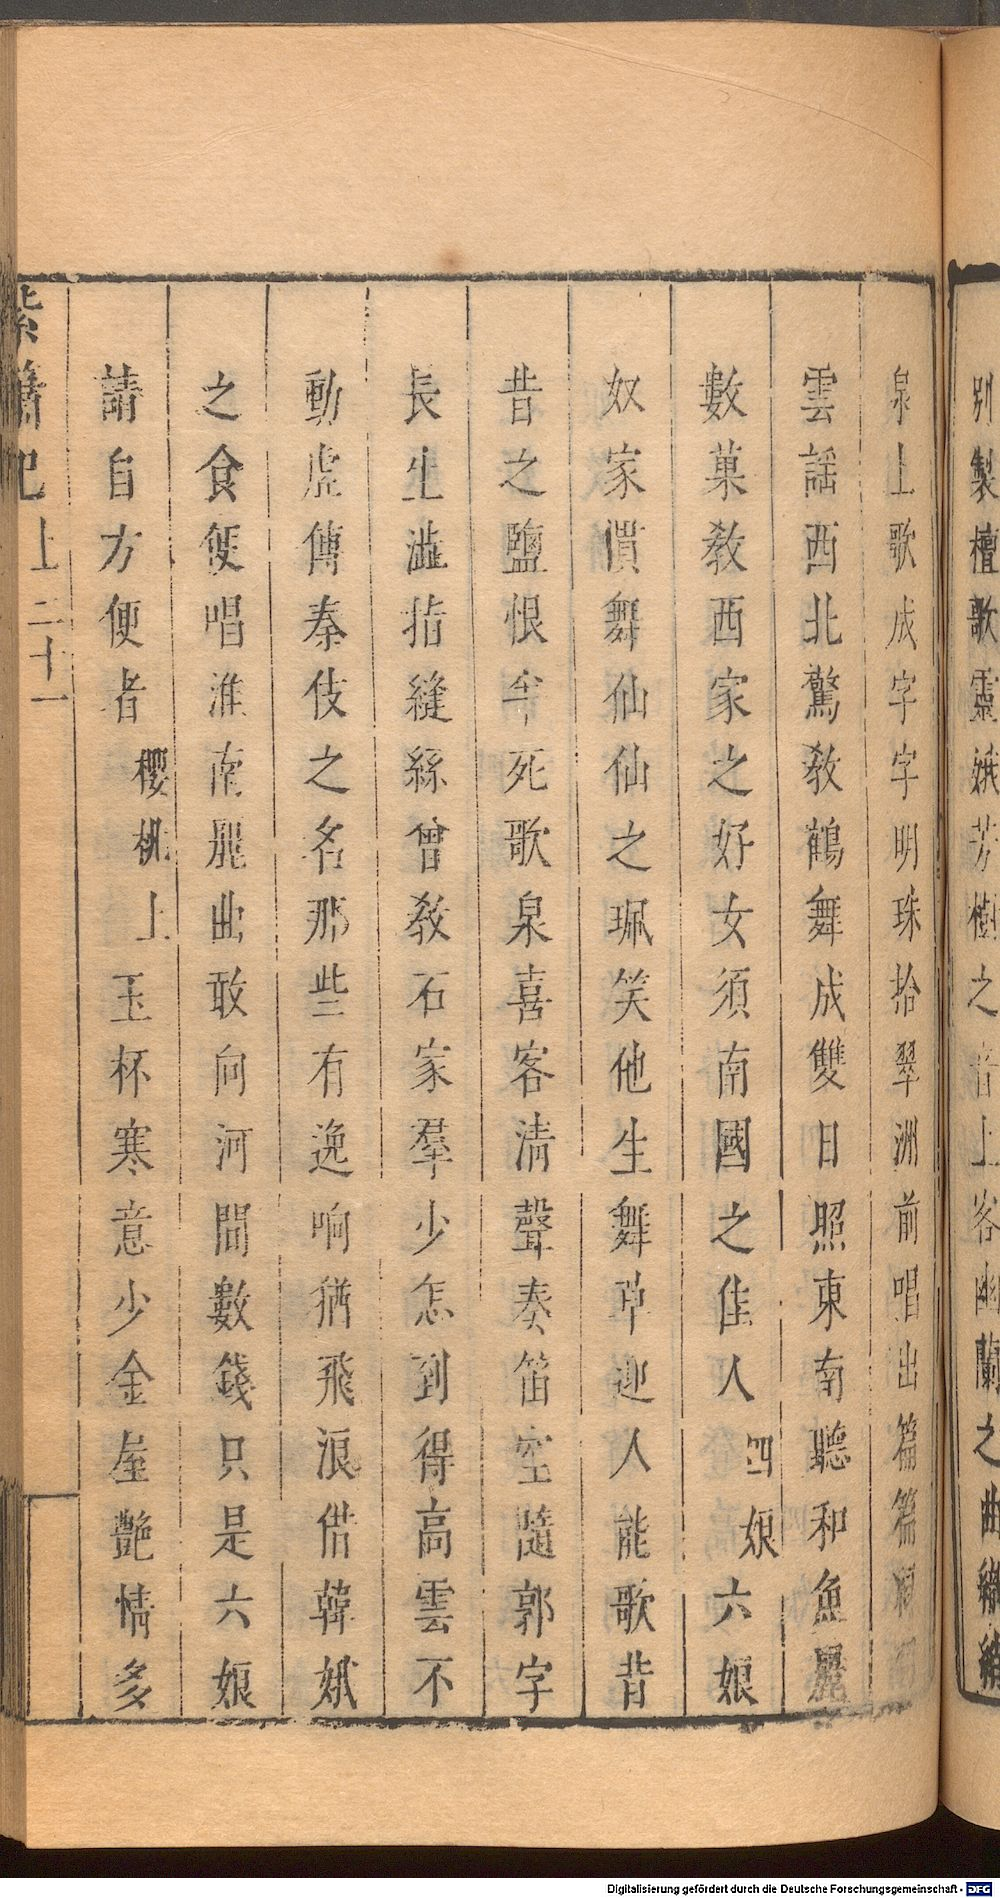 別製檀歌靈娥芳樹之音上客幽蘭之曲
泉上歌成字字明珠拾翠洲前唱出篇篇
雲謡西北驚教鶴舞成雙日照東南聽和魚麗
數菓教西家之好女須南國之佳人四娘六娘
奴家慣舞仙仙之珮笑他生舞草迎人能歌昔
昔之鹽恨半死歌泉喜客清聲奏笛空隨郭字
長生澁指縫絲曾教石家羣少怎到得高雲不
動虛傳秦伎之名那些有逸响猶飛浪借韓娥
之食便唱淮南飛曲敢向河間數錢只是六娘
請自方便者櫻桃上玉杯寒意少金屋艶情多
紫簫記上二十一
Digitalisierung gefördert durch die Deutsche Forschungsgemeinschaft - DFG